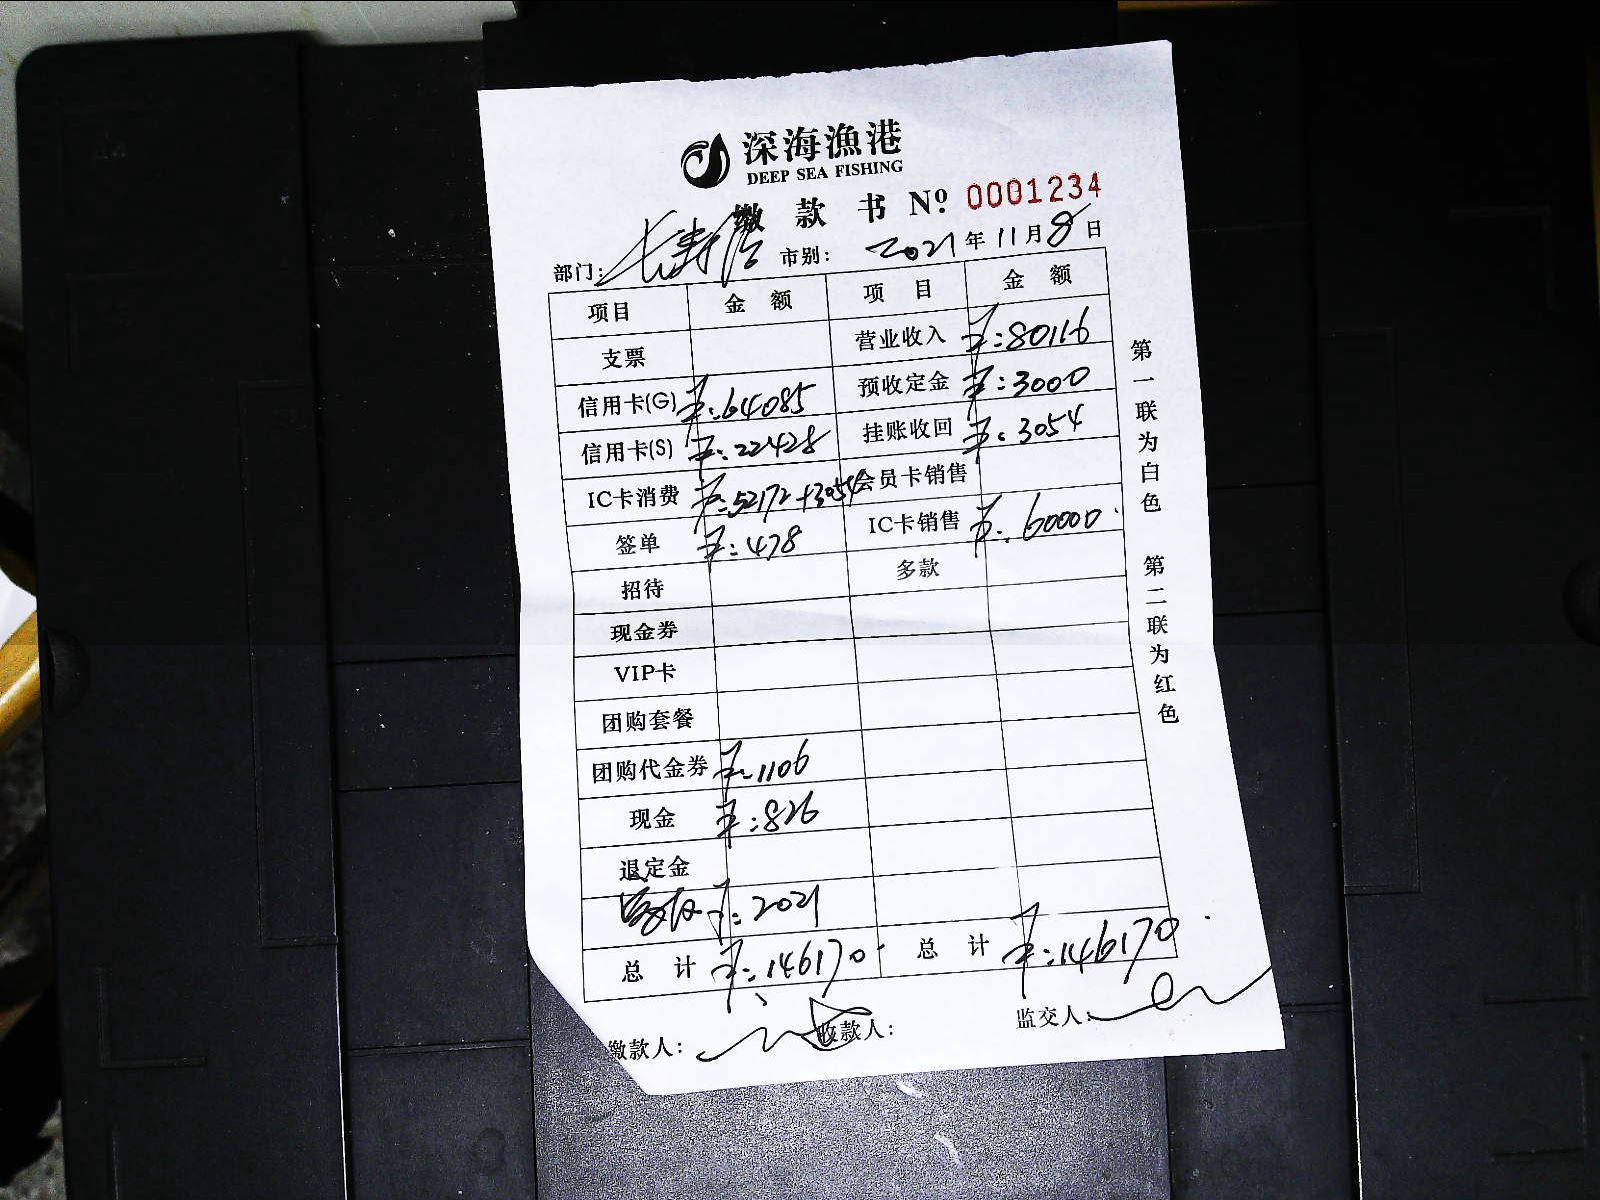 深海渔港
DEEP SEA FISHING
缴 款 书 Nº 0001234
部门: 长寿 市别: 2021 年 11 月 8 日
项目 金 额 项 目 金 额
支票 营业收入 ¥:80116
信用卡(G) ¥:64085 预收定金 ¥:3000
信用卡(S) ¥:22428 挂账收回 ¥:3054
IC卡消费 ¥:52172+3054 会员卡销售
签单 ¥:478 IC卡销售 ¥:60000
招待 多款
现金券
VIP卡
团购套餐
团购代金券 ¥:1106
现金 ¥:826
退定金
¥:2021
总 计 ¥:146170 总 计 ¥:146170
缴款人: 收款人: 监交人:
第一联为白色 第二联为红色